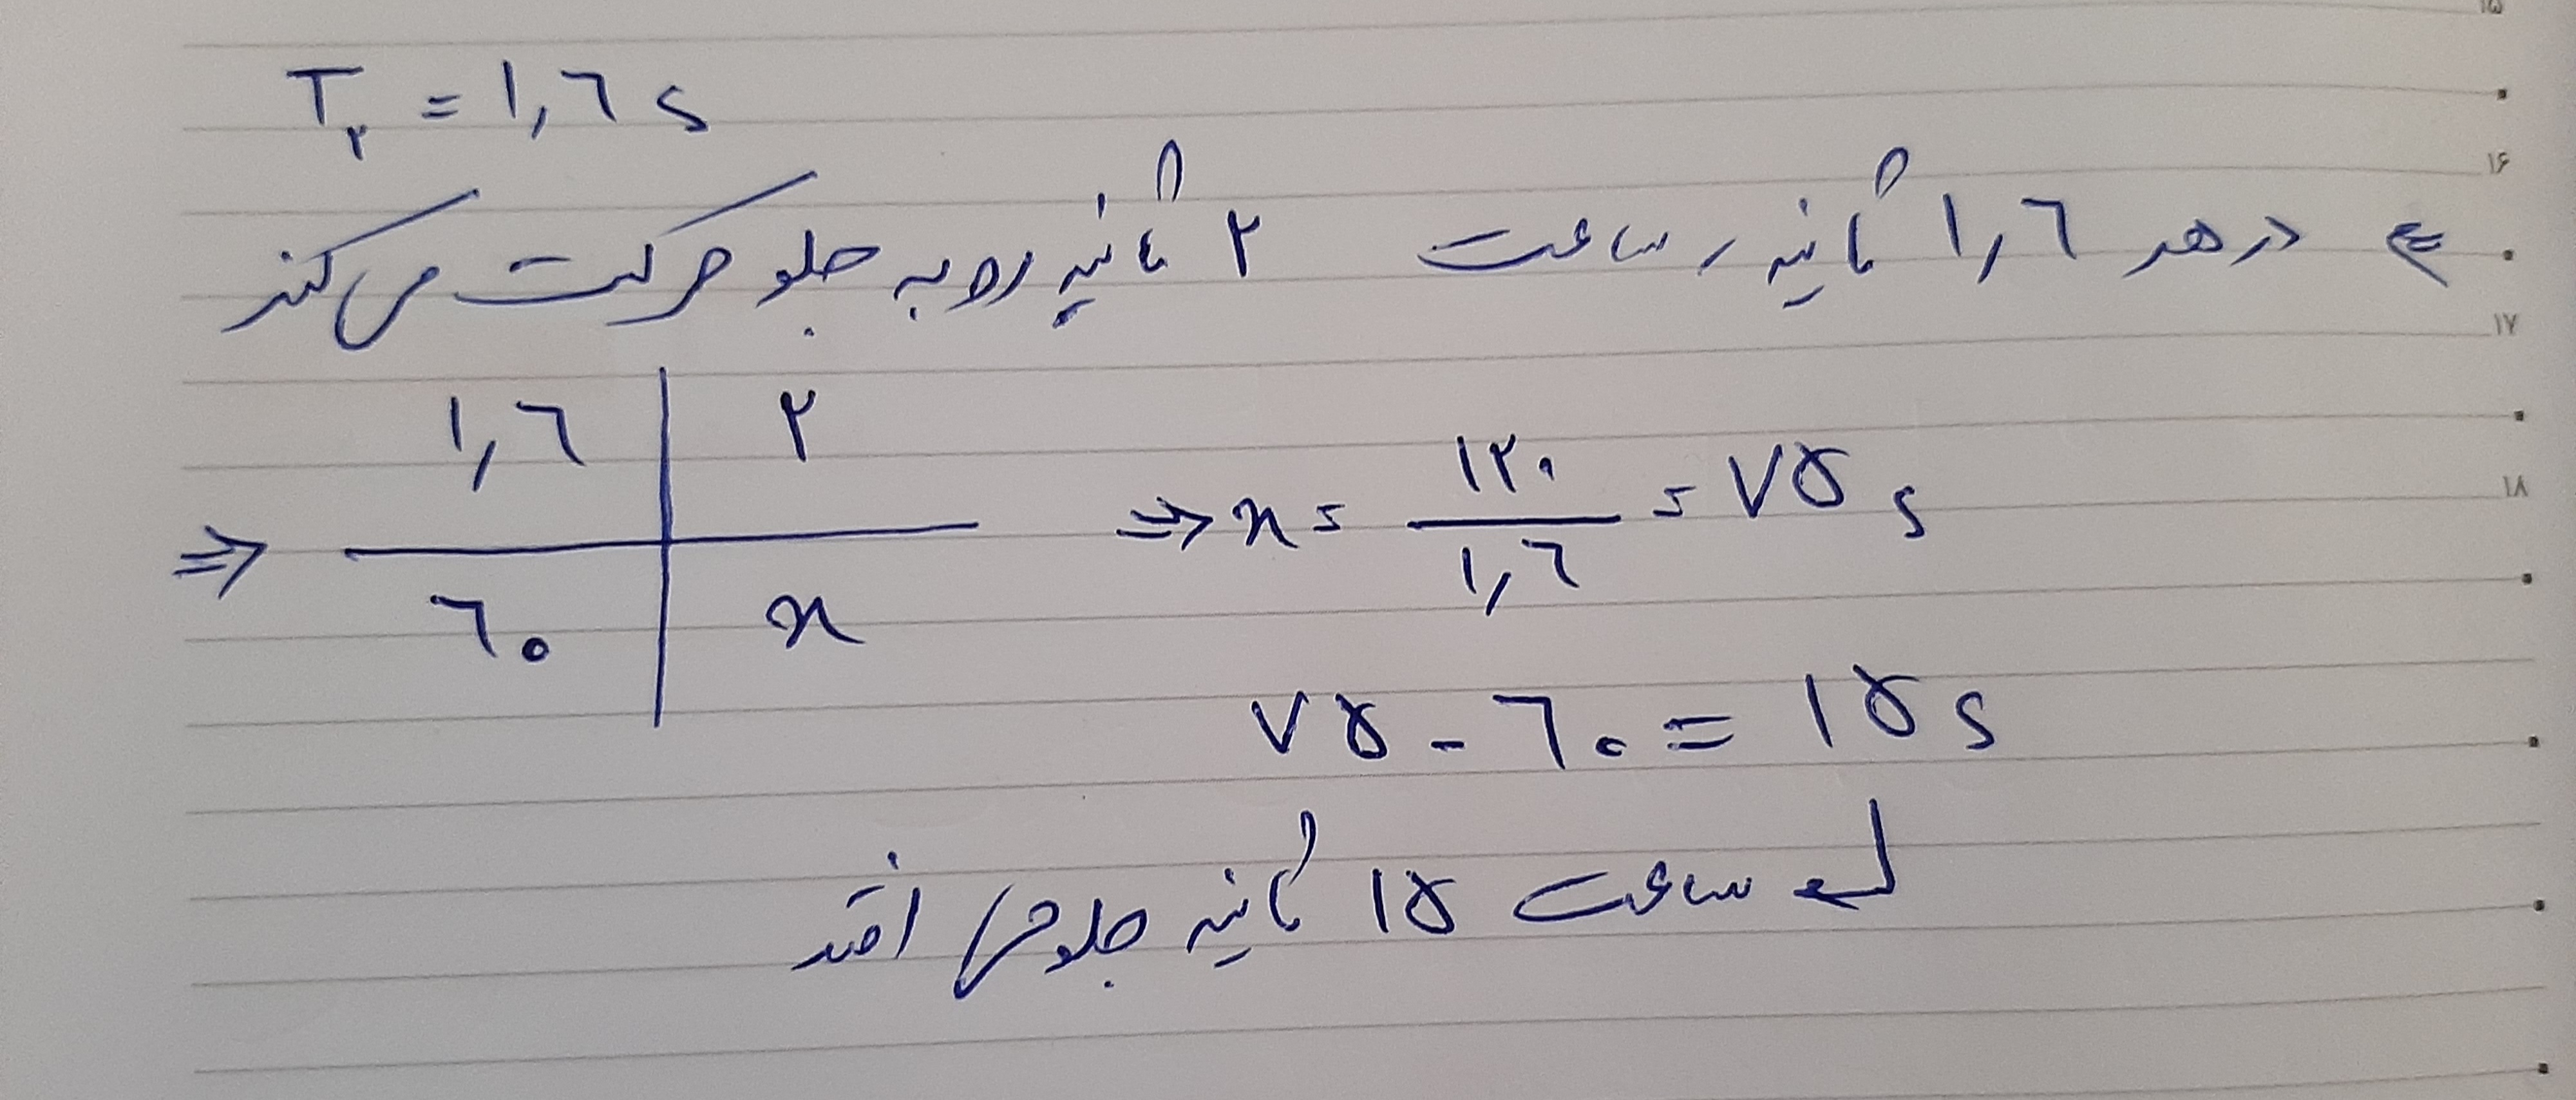 T₂ = ۱٫۶ s
⇐ در هر ۱٫۶ ثانیه، ساعت ۲ ثانیه رو به جلو حرکت می‌کند
۱٫۶ | ۲
⇒ ۶۰ | x ⇒ x = ۱۲۰ / ۱٫۶ = ۷۵ s
۷۵ - ۶۰ = ۱۵ s
ساعت ۱۵ ثانیه جلو می‌افتد
۱۵
۱۶
۱۷
۱۸